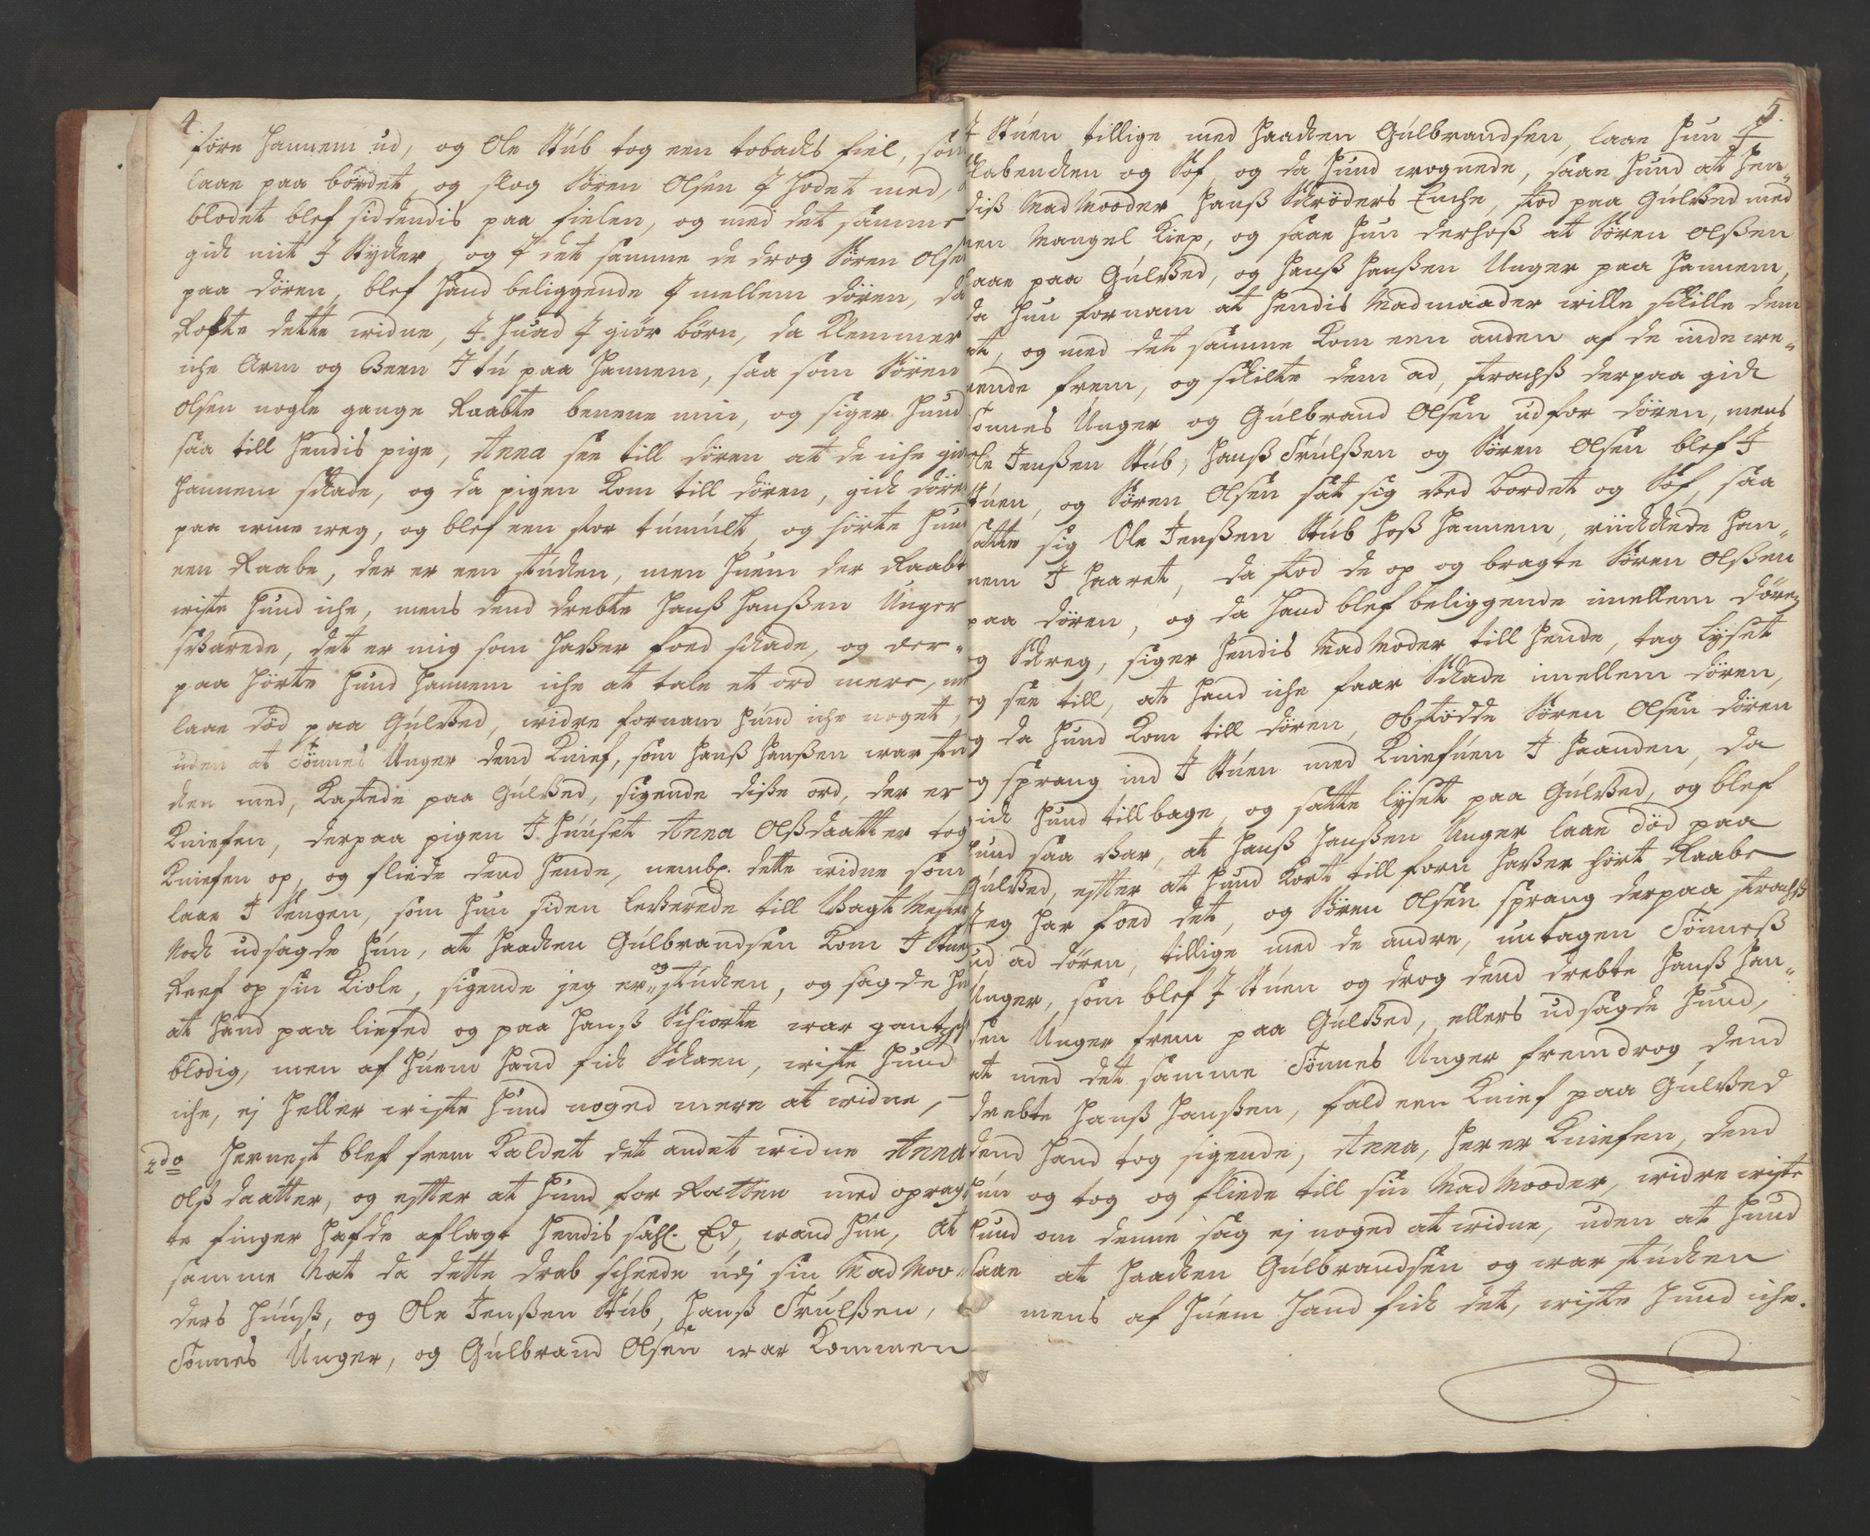 4.
føre hannem ud, og Ole Stúb tog een tobachs fiel, som
laae paa bordet, og slog Søren Olsen J hodet med,
blodet blef siddendis paa fielen, og med det samme
gich mit J Støcher, og J det samme de drog Søren Olsen
paa døren, blef hand beliggende J mellem døren, da
Rofte dette widne, J. húad J giør børn, da klemmer
iche Arm og Been J tú paa hannem, saa som Søren
Olsen nogle gange Raabte benene min, og siger hund
saa till hendis pige, Anna see till døren at de iche giør
hannem schade, og da pigen kom till døren, gich døren
paa wiine weg, og blef een stor túmúlt, og hørte hun
een Raabe, der er een stúchen, men húem der Raabte
wiste hund iche, mens dend drebte Hanß Hanßen Únger
sßarede, det er mig som haßer foed schade, og der-
paa hørte hund hannem iche at tale et ord mere, men
laae død paa Gúlßed, widre fornam húnd iche noget,
uden at Tønnes Unger dend Knief, som Hanß Hanßen war stu
chen med, kastede paa Gúlßed, sigende diße ord, der er
Kniefen, derpaa pigen J húúset Anna Olßdaatter tog
Kniefen op, og fliede dend hende, nembl. dette widne som
laae J Sengen, som hun siden leßerede till Vagt Mester
Noch udsagde hún, at Haachen Gúlbrandsen kom J Stuen
Reef op sin Kiole, sigende jeg er og stúchen, og sagde hun
at hand paa lifed og paa Hanß Schiorte war gantz
blodig, men af húem hand fich Schaen, wiste hund
iche, ej heller wiste hund noged mere at widne, -
2do Hernest blef frem kaldet det andet widne Anna
Olß daatter, og efter at húnd for Retten med opragt
te finger hafde aflagt hendis sahl. Ed, wand hún, at
samme Nat da dette drab scheede údj sin Mad Moo-
ders húúß, og Ole Jenßen Stúb, Hanß Trúlßen,
Tønnes Unger, og Gúlbrand Olsen war kommen
5.
J Stúen tillige med Haachen Gúlbrandsen, laae hun J
Slabenchen og Sof, og da hund wognede, saae hund at hen-
diß Mad Mooder Hanß Schrøders Enche, stod paa Gúlßed med
een Mangel kiep, og saae hun derhoß at Søren Olßen
laae paa Gúlßed, og Hanß Hanßen Unger paa hannem,
da hun fornam at hendis Madmaader wille schille dem
at, og med det samme kom een anden af de inde we-
rende frem, og schilte dem ad, strachß derpaa gich
Tønnes Unger og Gúlbrand Olsen udfor døren, mens
Ole Jenßen Stúb, Hanß Trúlßen og Søren Olsen blef J
Stúen, og Søren Olsen sat sig ßed bordet og Sof, saa
satte sig Ole Jenßen Stúb hoß hannem, rúchede han-
nem J haaret, da stod de op og bragte Søren Olßen
paa døren, og da hand blef beliggende imellem døren
og Schreg, siger hendis Mad Moder till hende, tag lyset
og see till, at hand iche faar Schade imellem døren,
og da hund kom till døren, obstødde Søren Olsen døren
og sprang ind J Stúen med Kniefúen J haanden, da
gich hund tillbage, og satte lyset paa Gúlßed, og blef
hund saa ßar, at Hanß Hanßen Unger laae død paa
Gúlßed, efter at hund kort till forn haßer hørt Raabe
Jeg har foed det, og Søren Olsen sprang derpaa strachß
ud ad døren, tillige med de andre, untagen Tønneß
Unger, som blef J Stúen og drog dend drebte Hanß Han-
sen Unger frem paa Gúlßed, ellers udsagde hund,
at med det samme Tønnes Unger fremdrog dend
drebte Hanß Hanßen, fald een Knief paa Gúlßed
dend hand tog sigende, Anna, her er Kniefen, dend
hún og tog og fliede till sin Mad Mooder, widre wiste
hund om denne sag ej noged at widne, uden at hund
saae at Haachen Gúlbrandsen og war stúchen
mens af húem hand fich det, wiste hund iche.